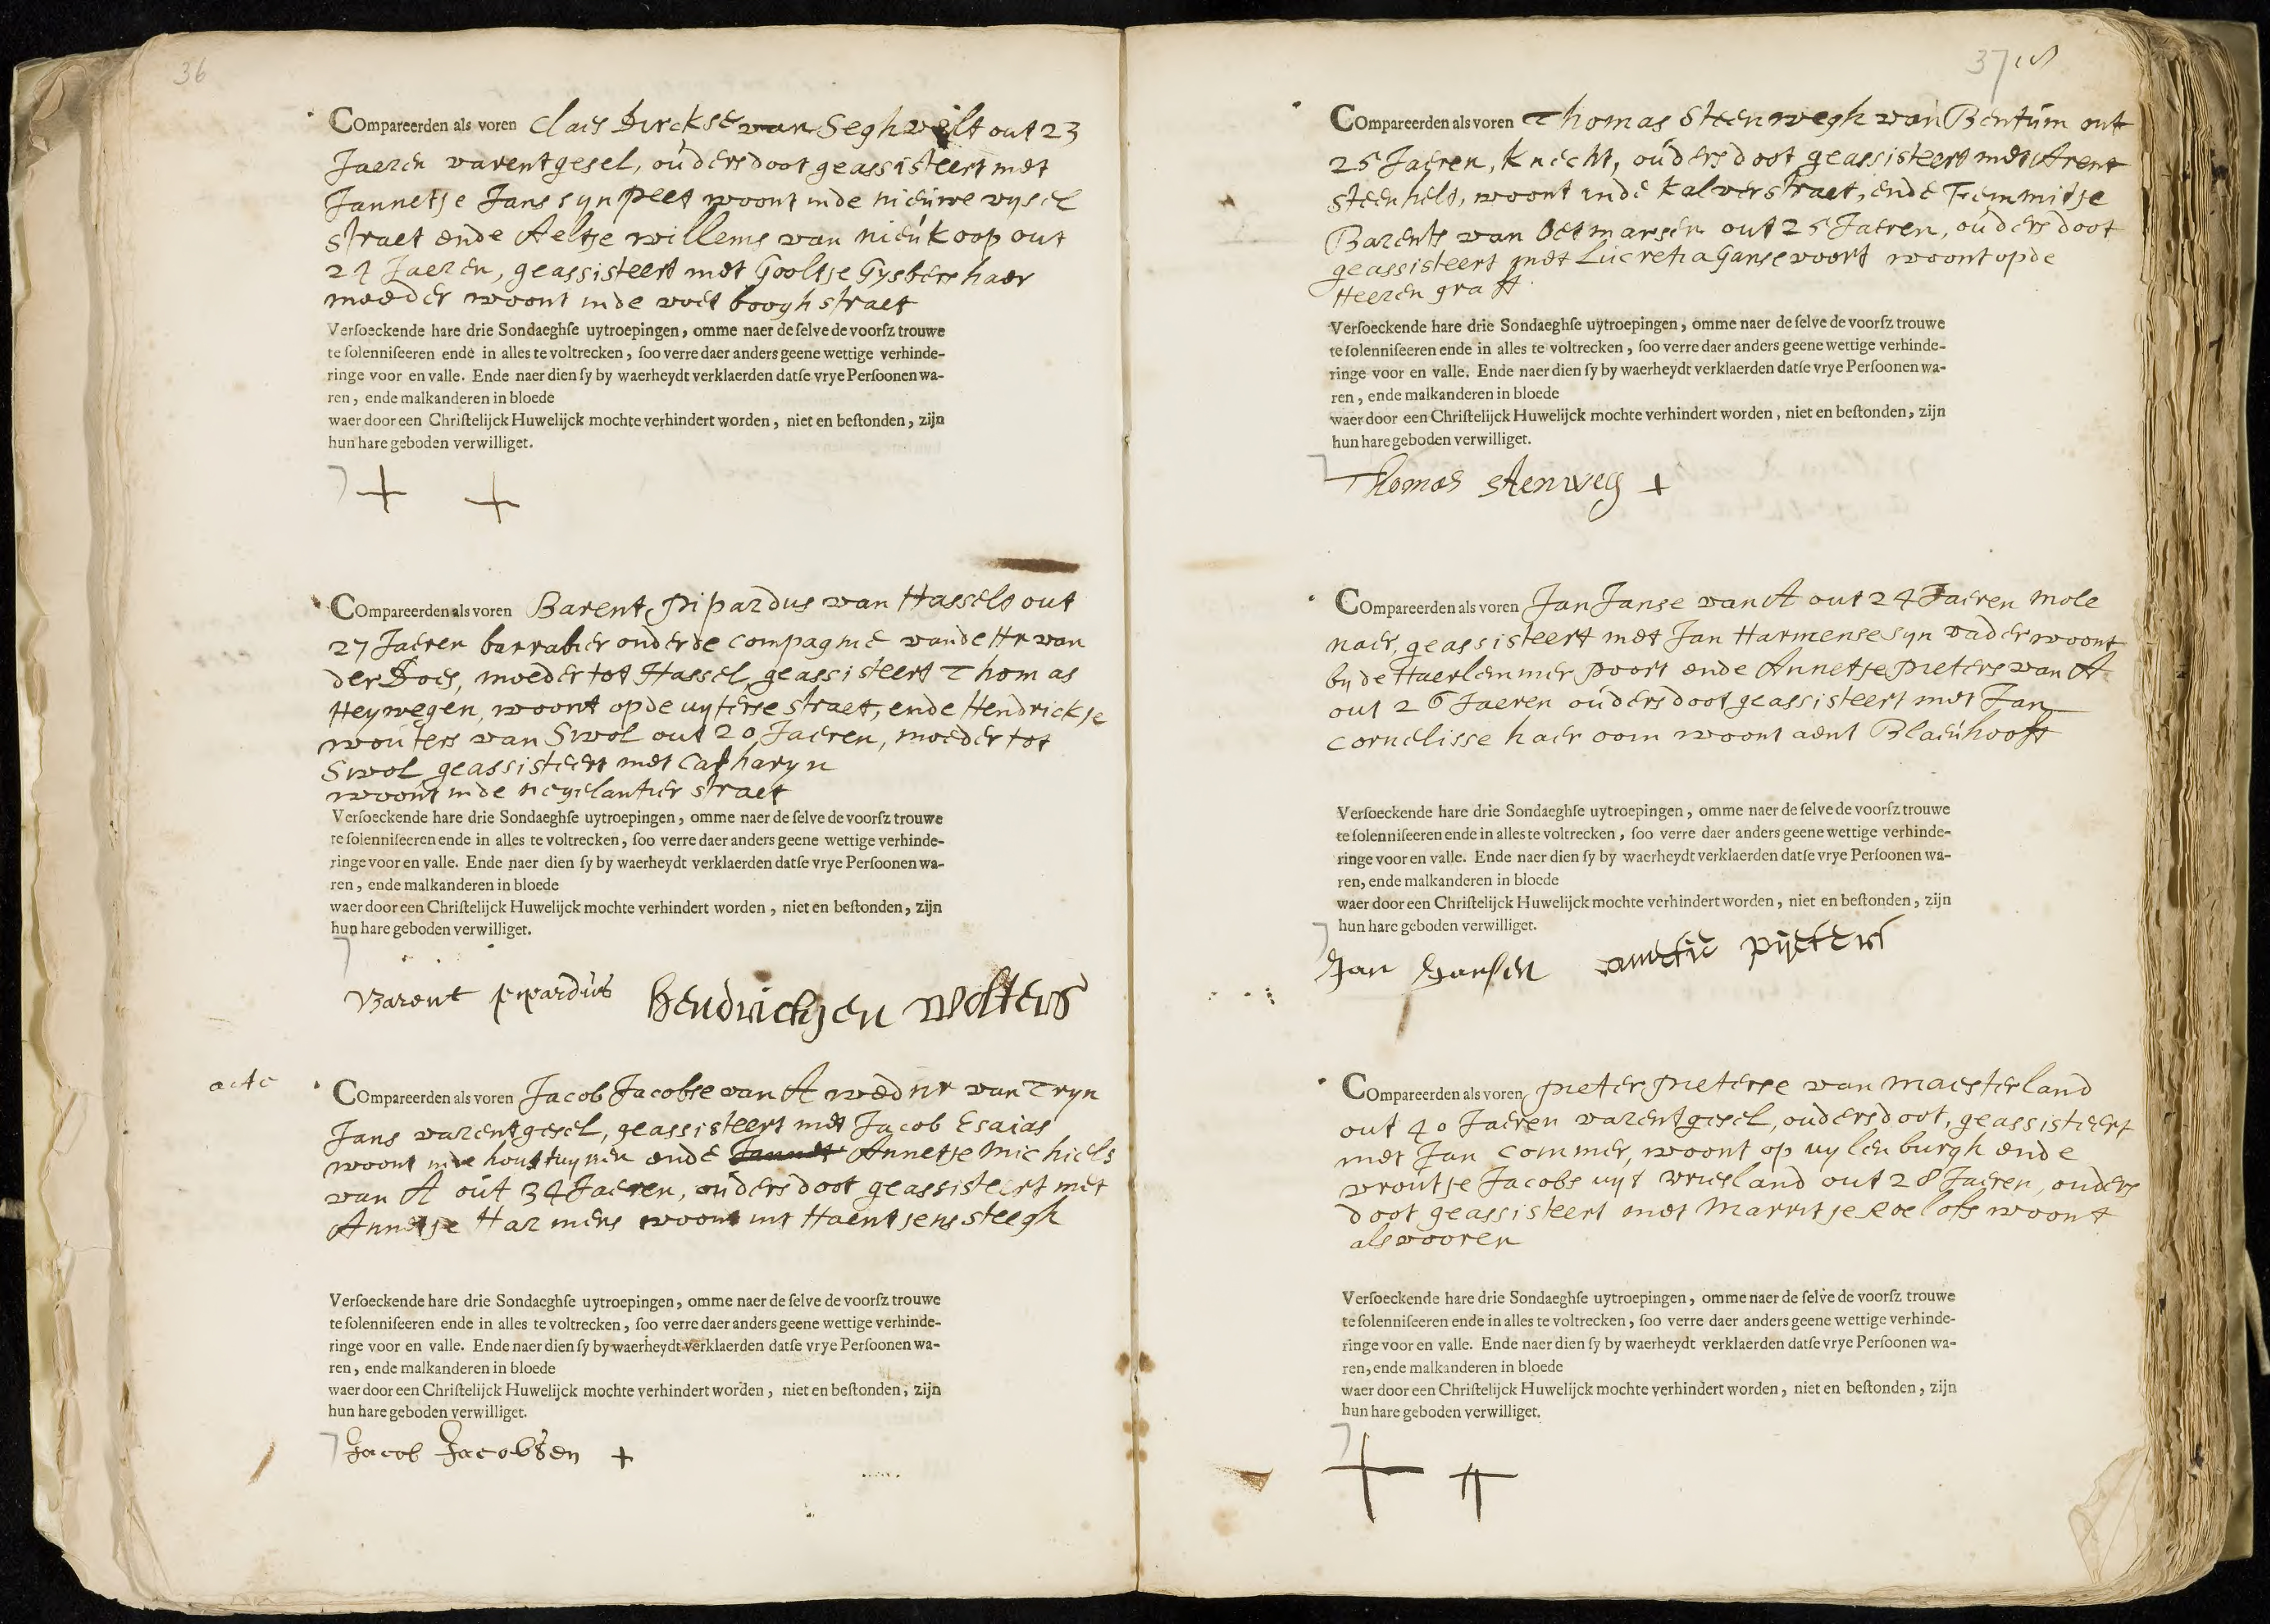 36
COmpareerden als voren Claes Dirckse van Seghwelt out 23
Jaeren varentgesel, ouders doot geassisteert met
Jannetje Jans syn peet woont inde nieuwe vysel
straet ende Aeltje willems van nieukoop out
24 Jaeren, geassisteert met Gooltje Gysbers haer
moeder woont inde voet boogh straet
Verſoeckende hare drie Sondaeghſe uytroepingen, omme naer de ſelve de voorſz trouwe
te ſolenniſeeren ende in alles te voltrecken, ſoo verre daer anders geene wettige verhinde-
ringe voor en valle. Ende naer dien ſy by waerheydt verklaerden datſe vrye Perſoonen wa-
ren, ende malkanderen in bloede
waer door een Chriſtelijck Huwelijck mochte verhindert worden, niet en beſtonden, zijn
hun hare geboden verwilliget.
+ +
COmpareerden als voren Barent Pipardus van Hasselt out
27 Jaeren out onder de compagnie vande Hr van
der Does, moeder tot Hassel, geassisteert Thomas
Heywegen, woont op de uyterse straet, ende Hendrickje
wouters van Swol out 20 Jaeren, moeder tot
Swol geassisteert met Catharyn
woont inde negelantier straet
Verſoeckende hare drie Sondaeghſe uytroepingen, omme naer de ſelve de voorſz trouwe
te ſolenniſeeren ende in alles te voltrecken, ſoo verre daer anders geene wettige verhinde-
ringe voor en valle. Ende naer dien ſy by waerheydt verklaerden datſe vrye Perſoonen wa-
ren, ende malkanderen in bloede
waer door een Chriſtelijck Huwelijck mochte verhindert worden, niet en beſtonden, zijn
hun hare geboden verwilliget.
Barent pipardus hendrickjen wolters
acte
COmpareerden als voren Jacob Jacobse van A wednr van Tryn
Jans varentgesel, geassisteert met Jacob Esaias
woont inde houttuynen ende Jannet Annetje Michiels
van A out 34 Jaeren, ouders doot geassisteert met
Annetje Harmens woont int Haentjens steegh
Verſoeckende hare drie Sondaeghſe uytroepingen, omme naer de ſelve de voorſz trouwe
te ſolenniſeeren ende in alles te voltrecken, ſoo verre daer anders geene wettige verhinde-
ringe voor en valle. Ende naer dien ſy by waerheydt verklaerden datſe vrye Perſoonen wa-
ren, ende malkanderen in bloede
waer door een Chriſtelijck Huwelijck mochte verhindert worden, niet en beſtonden, zijn
hun hare geboden verwilliget.
Jacob Jacobsen +
37
COmpareerden als voren Thomas Steenwegh van Bentum out
25 Jaeren, knecht, ouders doot geassisteert met Arent
steenhelt, woont inde kalverstraet, ende Femmitje
Barents van Oetmarsen out 25 Jaeren, ouders doot
geassisteert met Lucretia Gansevoort woont op de
Heeren graft
Verſoeckende hare drie Sondaeghſe uytroepingen, omme naer de ſelve de voorſz trouwe
te ſolenniſeeren ende in alles te voltrecken, ſoo verre daer anders geene wettige verhinde-
ringe voor en valle. Ende naer dien ſy by waerheydt verklaerden datſe vrye Perſoonen wa-
ren, ende malkanderen in bloede
waer door een Chriſtelijck Huwelijck mochte verhindert worden, niet en beſtonden, zijn
hun hare geboden verwilliget.
Thomas stenweg +
COmpareerden als voren Jan Janse van A out 24 Jaeren mole
naer, geassisteert met Jan Harmense syn vader woont
by de Haerlemmer poort ende Annetje pieters van A
out 26 Jaeren ouders doot geassisteert met Jan
Cornelisse haer oom woont aent Blaeuhooft
Verſoeckende hare drie Sondaeghſe uytroepingen, omme naer de ſelve de voorſz trouwe
te ſolenniſeeren ende in alles te voltrecken, ſoo verre daer anders geene wettige verhinde-
ringe voor en valle. Ende naer dien ſy by waerheydt verklaerden datſe vrye Perſoonen wa-
ren, ende malkanderen in bloede
waer door een Chriſtelijck Huwelijck mochte verhindert worden, niet en beſtonden, zijn
hun hare geboden verwilliget.
Jan Jansen annetie pijeters
COmpareerden als voren pieter pieterse van maesterland
out 40 Jaeren varentgesel, ouders doot, geassisteert
met Jan Commer, woont op uylenburgh ende
vroutje Jacobs uyt vriesland out 28 Jaeren, ouders
doot geassisteert met Marritje Roelofs woont
als vooren
Verſoeckende hare drie Sondaeghſe uytroepingen, omme naer de ſelve de voorſz trouwe
te ſolenniſeeren ende in alles te voltrecken, ſoo verre daer anders geene wettige verhinde-
ringe voor en valle. Ende naer dien ſy by waerheydt verklaerden datſe vrye Perſoonen wa-
ren, ende malkanderen in bloede
waer door een Chriſtelijck Huwelijck mochte verhindert worden, niet en beſtonden, zijn
hun hare geboden verwilliget.
+